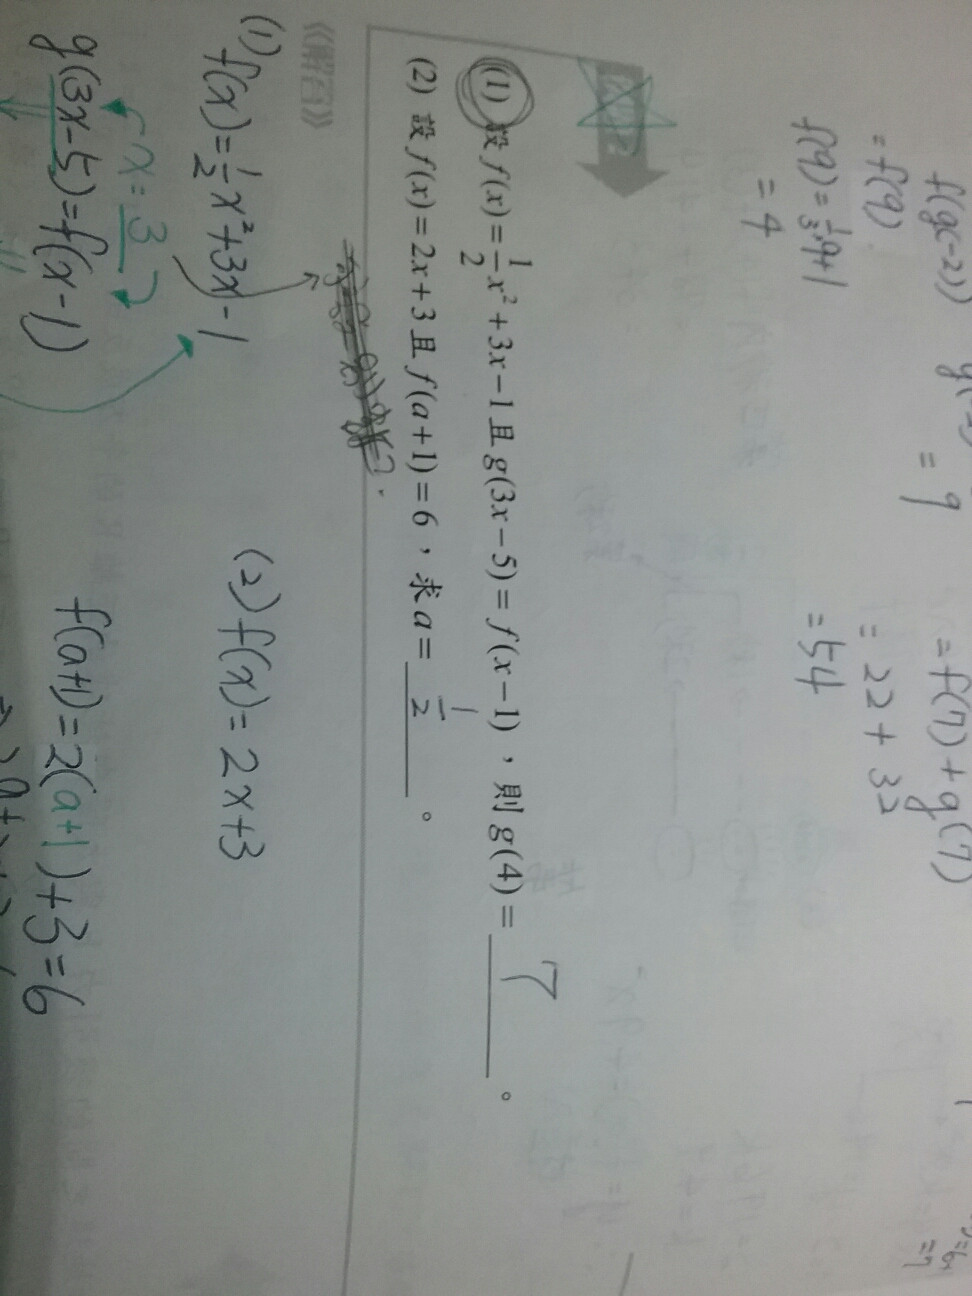 f(g(-2))
= f(9)
f(9) = 1/3·9+1
= 4
= 9
= f(7) + g(7)
= 22 + 32
= 54
(1) 設 f(x) = 1/2 x² + 3x − 1 且 g(3x − 5) = f(x − 1)，則 g(4) = 7 。
(2) 設 f(x) = 2x + 3 且 f(a + 1) = 6，求 a = 1/2 。
《解答》
(1) f(x) = 1/2 x² + 3x − 1
x = 3
g(3x−5) = f(x−1)
(2) f(x) = 2x+3
f(a+1) = 2(a+1)+3 = 6